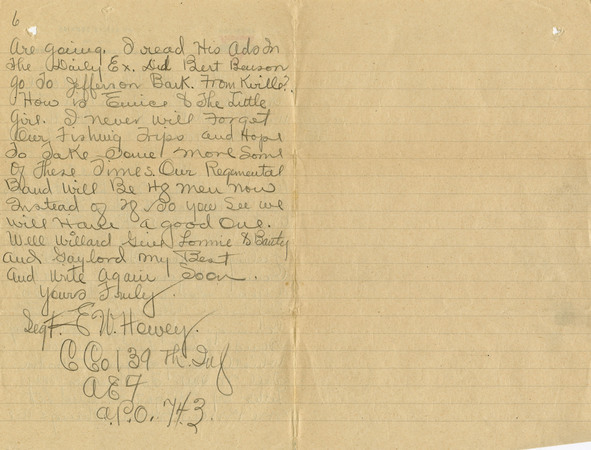 6
Are going. I read His Ads In
The Daily Ex. Did Bert Benson
go To Jefferson Bark. From Kville?
How is Eunice & The Little
Girl. I never will Forget
Our Fishing Trips and Hope
To Take Some More Some
Of These Times. Our Regimental
Band will Be 48 men now
Instead of 28 So you See we
will Have a good One.
Well Willard Give Lonnie &
And Gaylord My Best
And write again Soon.
Yours Truly
Segt. E W. Hawey.
C Co 139 Th. Inf
A E F
A.P.O. 743